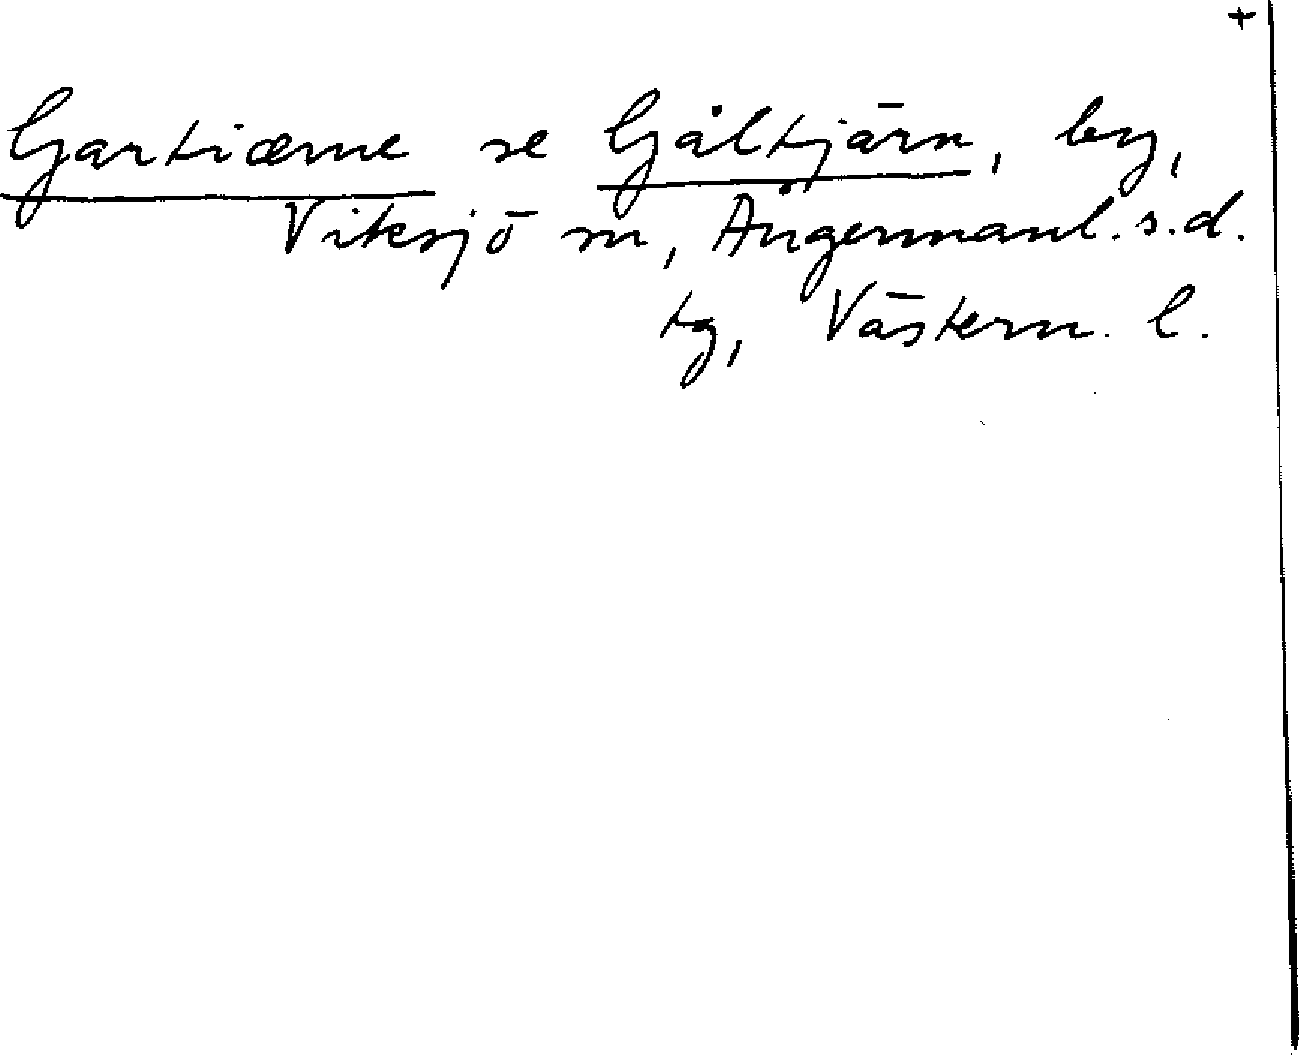 +
Gartiærne se Gåltjärn, by,
Viksjö sn, Ångermanl. s. d.
tg, Västern. l.